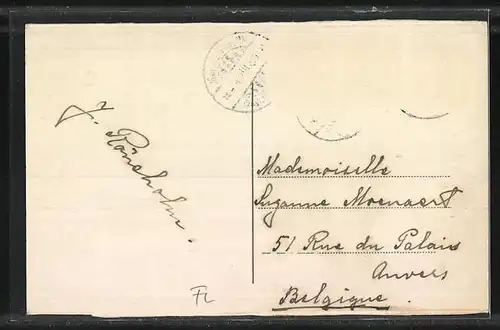 J. Rönsholm.
Mademoiselle
Suzanne Moenaert
51 Rue du Palais
Anvers
Belgique.
FL